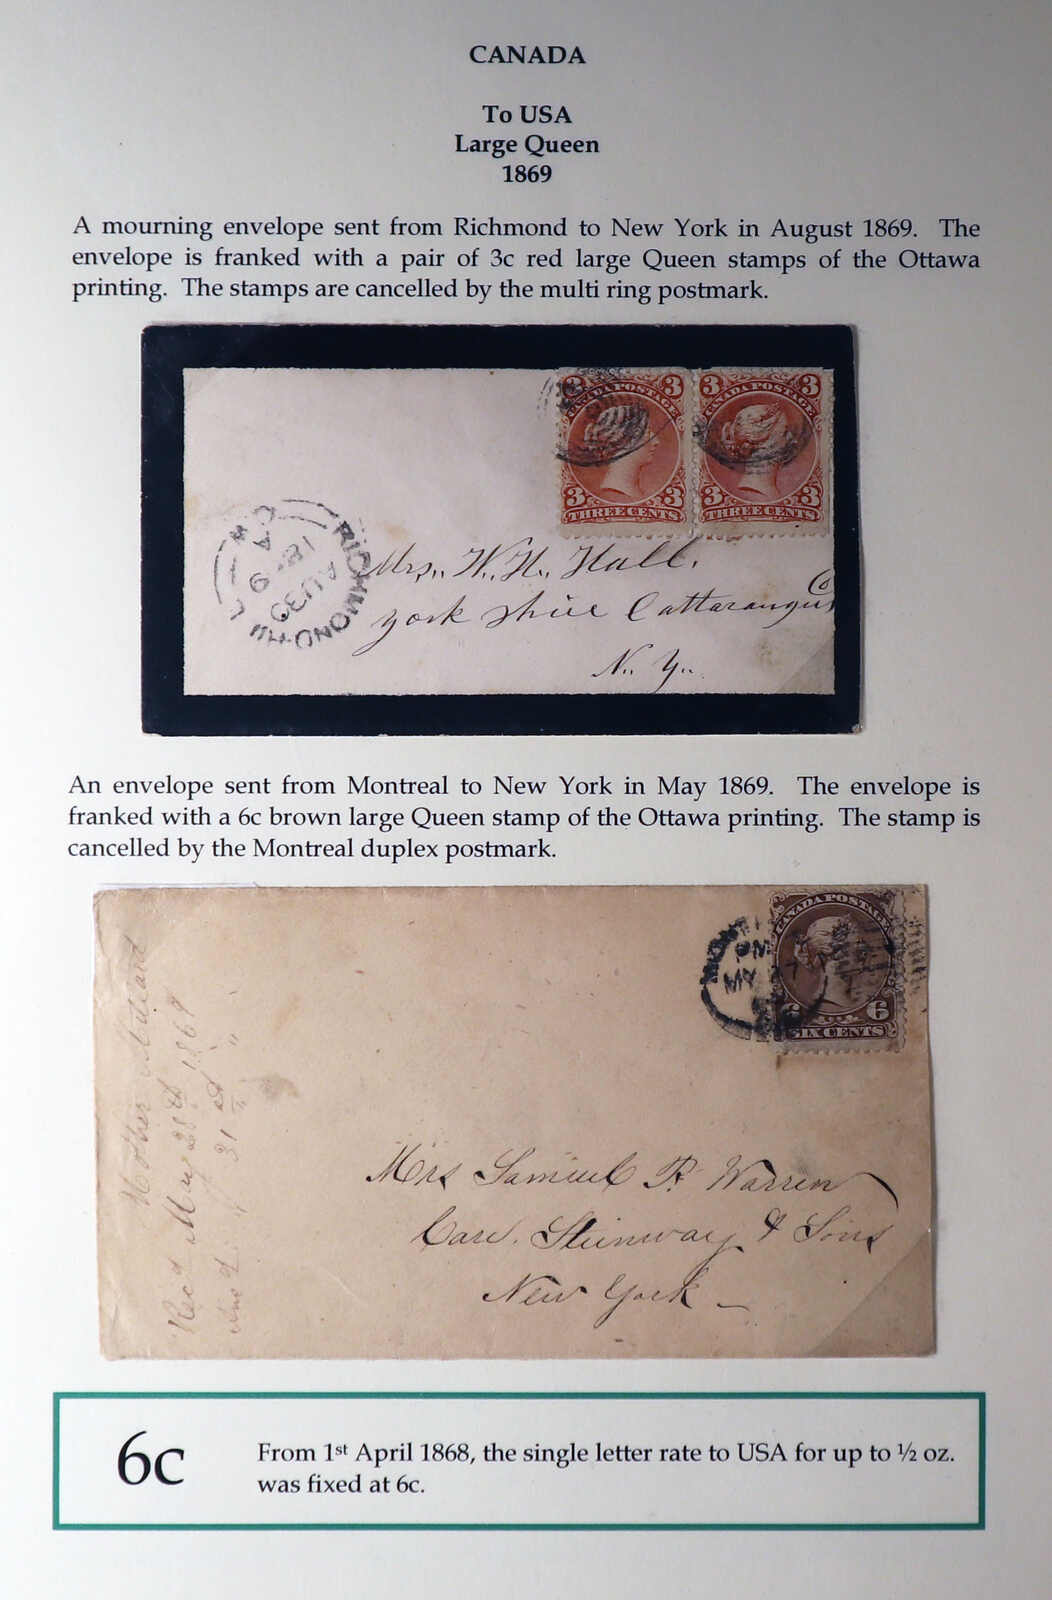 CANADA
To USA
Large Queen
1869
A mourning envelope sent from Richmond to New York in August 1869. The
envelope is franked with a pair of 3c red large Queen stamps of the Ottawa
printing. The stamps are cancelled by the multi ring postmark.
3 CANADA POSTAGE 3
3 3
THREE CENTS
3 CANADA POSTAGE 3
3 3
THREE CENTS
RICHMOND
AU 30
Mrs. W. H. Hall.
york shire Cattaraugus Co
N. Y.
An envelope sent from Montreal to New York in May 1869. The envelope is
franked with a 6c brown large Queen stamp of the Ottawa printing. The stamp is
cancelled by the Montreal duplex postmark.
CANADA POSTAGE
6 6
SIX CENTS
PM
MY 27
Mother
Recd May 28th 1869
" 31st "
Mrs Samuel R Warren
Care. Steinway & Sons
New York
6c
From 1st April 1868, the single letter rate to USA for up to ½ oz.
was fixed at 6c.